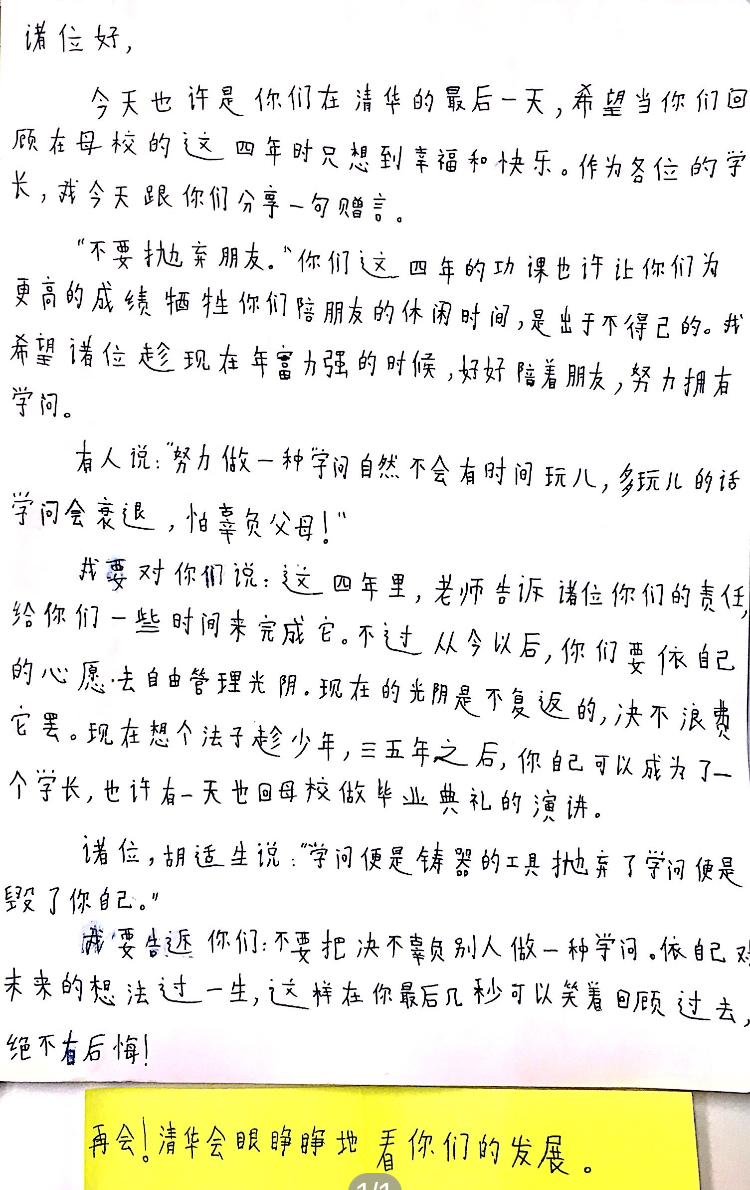 诸位好,
今天也许是你们在清华的最后一天,希望当你们回
顾在母校的这四年时只想到幸福和快乐。作为各位的学
长,我今天跟你们分享一句赠言。
"不要抛弃朋友。"你们这四年的功课也许让你们为
更高的成绩牺牲你们陪朋友的休闲时间,是出于不得已的。我
希望诸位趁现在年富力强的时候,好好陪着朋友,努力拥有
学问。
有人说:"努力做一种学问自然不会有时间玩儿,多玩儿的话
学问会衰退,怕辜负父母!"
我要对你们说:这四年里,老师告诉诸位你们的责任,
给你们一些时间来完成它。不过从今以后,你们要依自己
的心愿去自由管理光阴.现在的光阴是不复返的,决不浪费
它罢。现在想个法子趁少年,三五年之后,你自己可以成为了一
个学长,也许有一天也回母校做毕业典礼的演讲。
诸位,胡适生说:"学问便是铸器的工具抛弃了学问便是
毁了你自己。"
我要告诉你们:不要把决不辜负别人做一种学问。依自己对
未来的想法过一生,这样在你最后几秒可以笑着回顾过去,
绝不有后悔!
再会!清华会眼睁睁地看你们的发展。
1/1